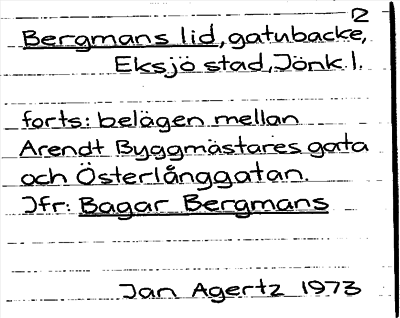 2
Bergmans lid, gatubacke,
Eksjö stad, Jönk. l.
forts: belägen mellan
Arendt Byggmästares gata
och Österlånggatan.
Jfr: Bagar Bergmans
Jan Agertz 1973